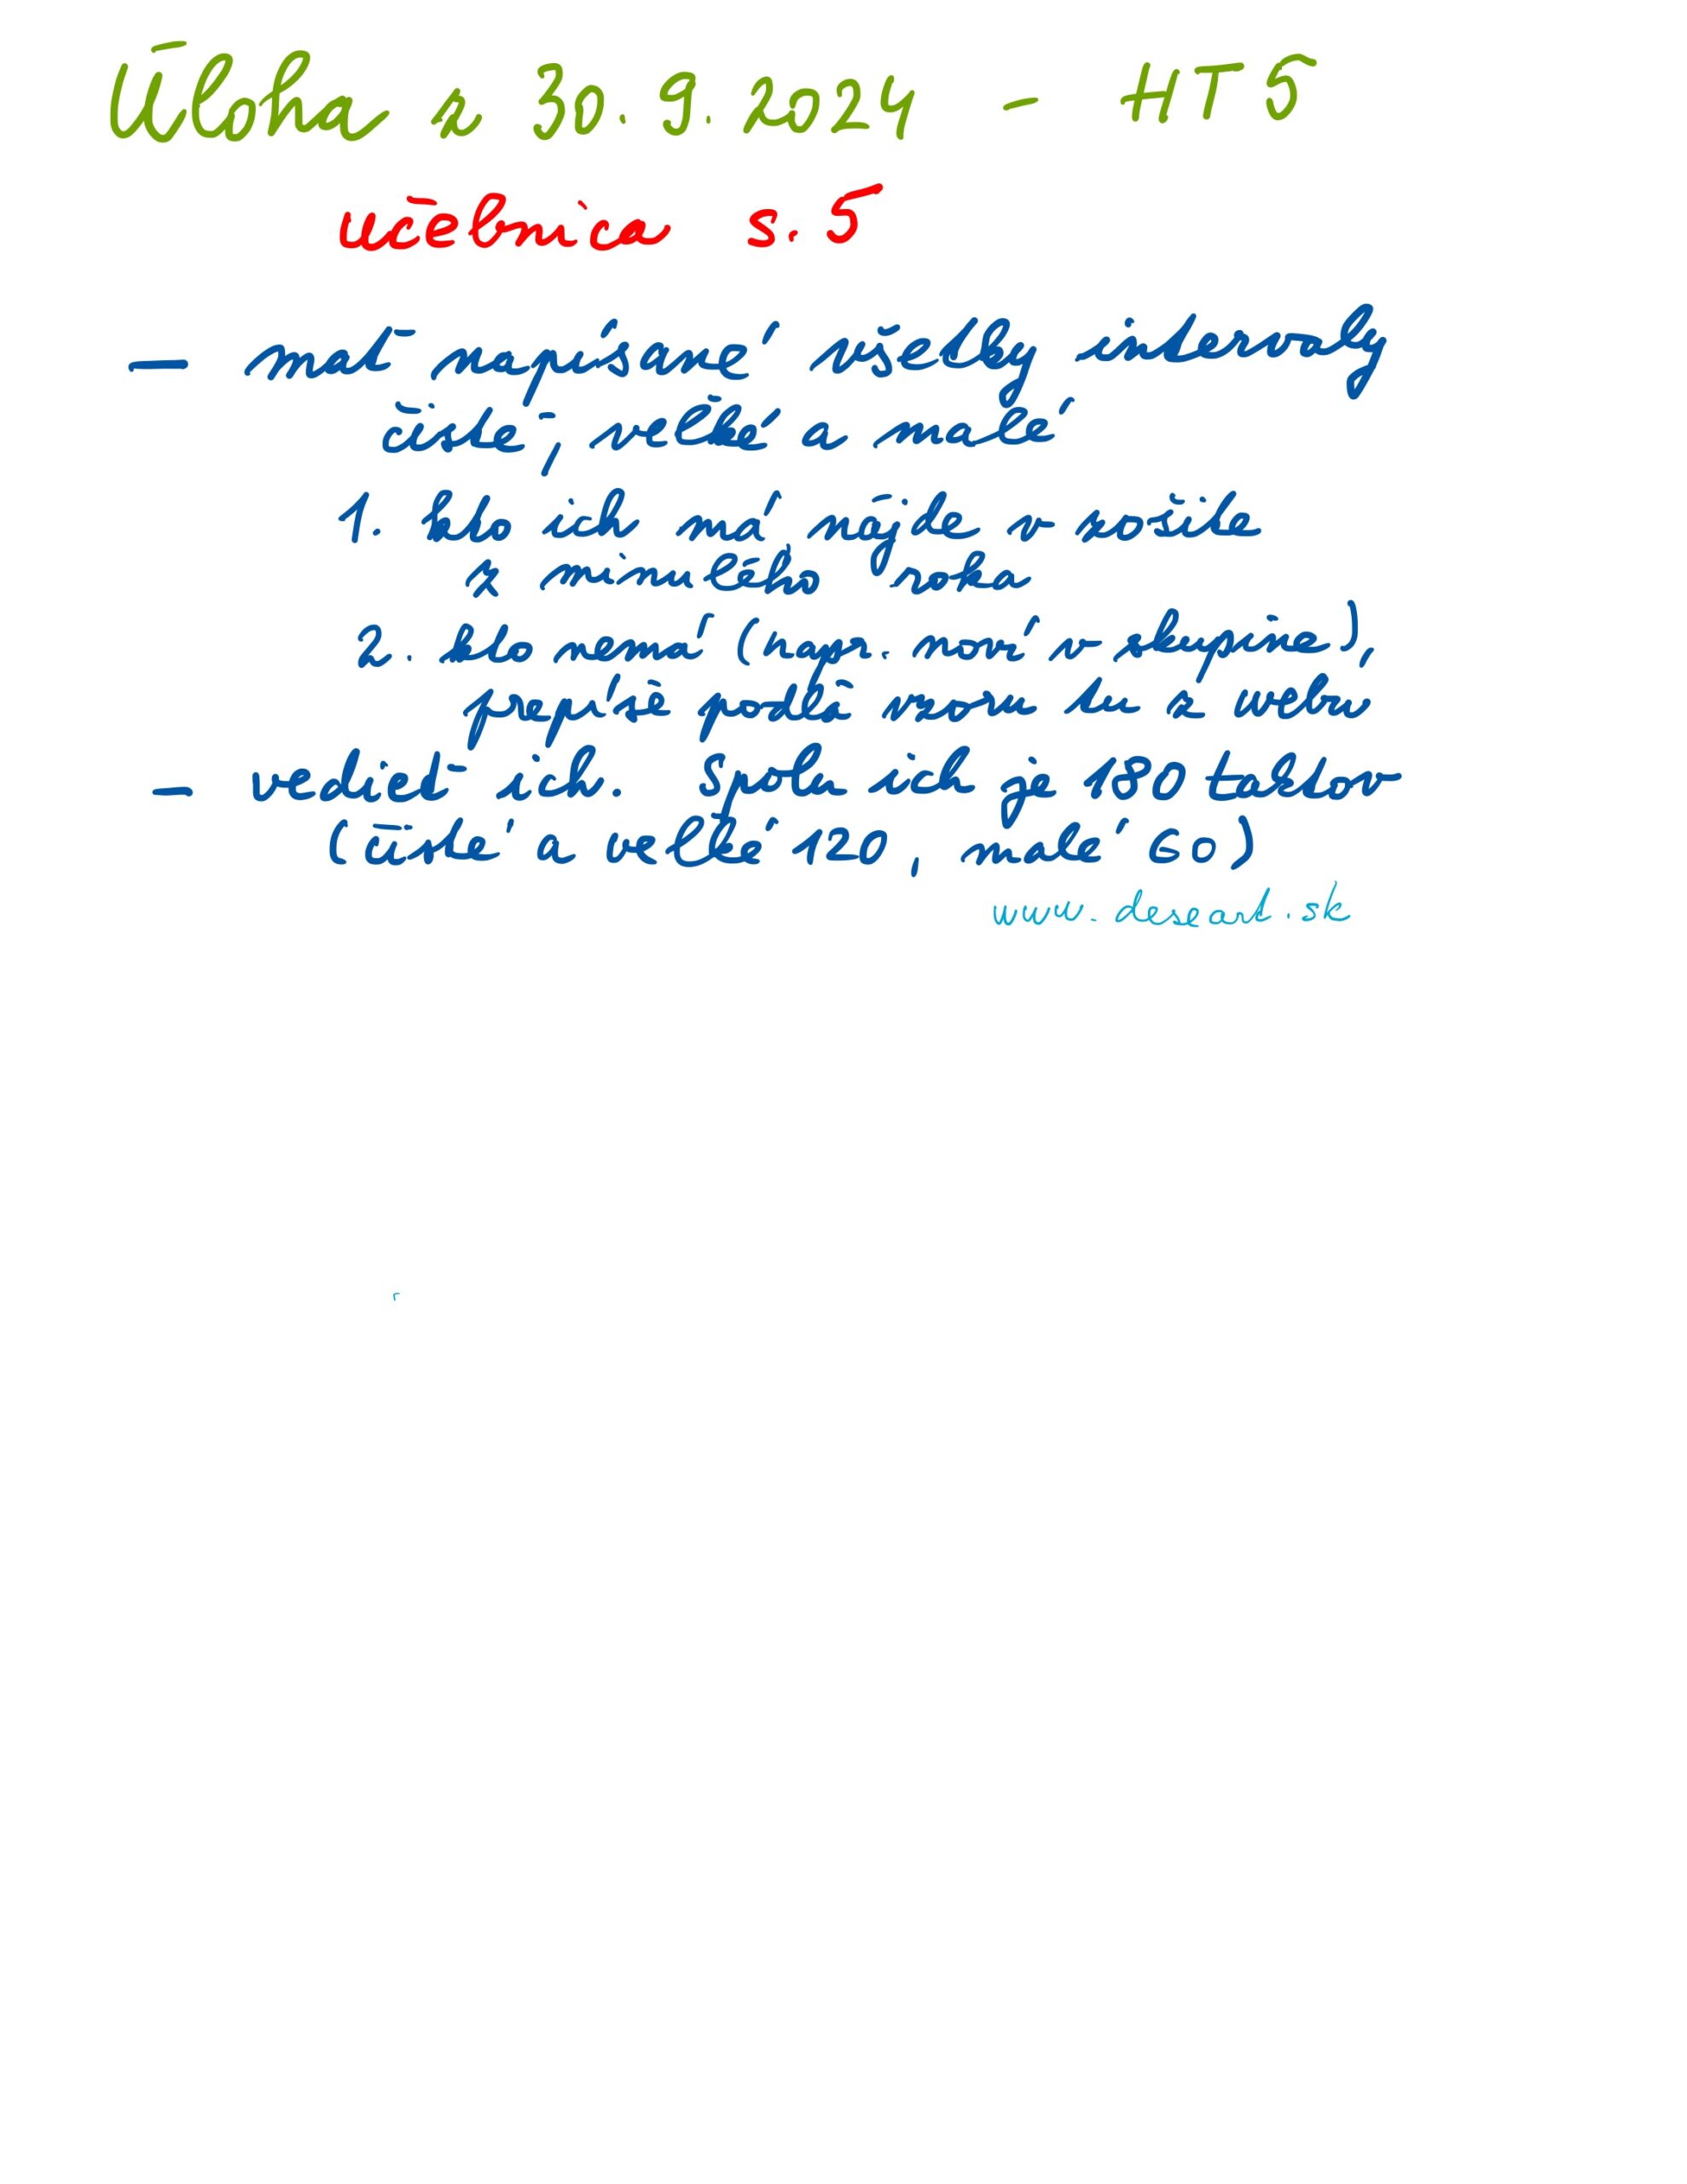 Úloha z 30.9.2024 - HT5
učebnica s. 5
- mať napísané všetky intervaly
čisté, veľké a malé
1. kto ich má nájde v zošite
z minulého roka
2. kto nemá (napr. noví v skupine),
prepíše podľa vzoru tu z webu
- vedieť ich. Spolu ich je 180 taktov
(čisté a veľké 120, malé 60)
www.deseart.sk